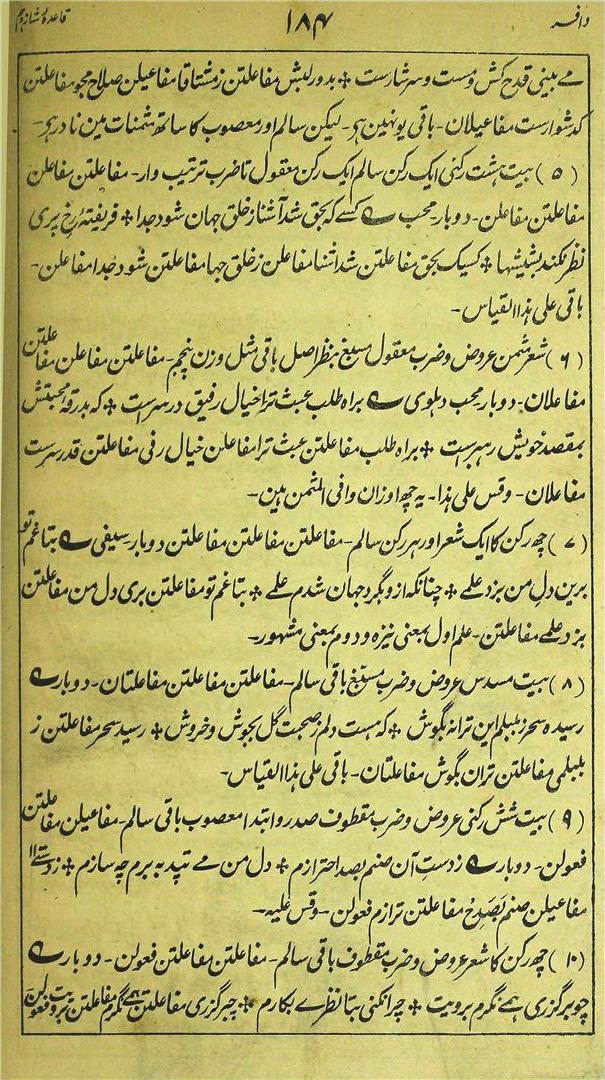 وافر ۱۸۴ قاعدہ شانزدہم
مے بینی قدح کش و مست و سرشارست ❊ بدورلبش مفاعلتن زمشتاقا مفاعیلن صلاح مجو مفاعلتن
کدشوارست مفاعیلان - باقی یونہین ہی - لیکن سالم اور معصوب کا ساتھ مثمنات مین نادر ہی -
(۵) بیت ہشت رکنی ایک رکن سالم ایک رکن معقول تا ضرب ترتیب وار - مفاعلتن مفاعلن
مفاعلتن مفاعلن - دوبار - محب ؎ کسے کہ بحق شد آشنا ز خلق جہان شود جدا ❊ فریفتۂ رخ پری
نظر نکند بشیشہا ❊ کسیک بحق مفاعلتن شد اٰشنا مفاعلن ز خلق جہا مفاعلتن شود جدا مفاعلن -
باقی علی ہذا القیاس -
(۶) شعر مثمن عروض و ضرب معقول مسبغ بنظر اصل باقی مثل وزن پنجم - مفاعلتن مفاعلن مفاعلتن
مفاعلان - دوبار محب دہلوی ؎ براہ طلب عبث ترا خیال رفیق در سرست ❊ کہ بدرقہ محبتش
بمقصد خویش رہبرست ❊ براہ طلب مفاعلتن عبث ترا مفاعلن خیال رفی مفاعلتن قدر سرست
مفاعلان - وقس علی ہذا - یہ چھ اوزان وافی المثمن ہین -
(۷) چھ رکن کا ایک شعر اور ہر رکن سالم - مفاعلتن مفاعلتن مفاعلتن دوبار سیفی ؎ بتا غم تو
برین دل من بزد علمے ❊ چنانکہ ازو بگرد جہان شدم علمے ❊ بتا غم تو مفاعلتن بری دل من مفاعلتن
بزد علمے مفاعلتن - علم اول بمعنی نیزہ و دوم بمعنی مشہور -
(۸) بیت مسدس عروض و ضرب مسبغ باقی سالم - مفاعلتن مفاعلتن مفاعلتان - دوبار ؎
رسیدہ سحر ز بلبلم این ترانہ بگوش ❊ کہ ہست دلم ز صحبت گل بجوش و خروش ❊ رسید سحر مفاعلتن ز
بلبلمی مفاعلتن تران بگوش مفاعلتان - باقی علی ہذا القیاس -
(۹) بیت شش رکنی عروض و ضرب مقطوف صدر و ابتدا معصوب باقی سالم - مفاعیلن مفاعلتن
فعولن - دوبار ؎ ز دست آن صنم بصد احترازم ❊ دل من مے تپد بہ برم چہ سازم ❊ ز دستے اا
مفاعیلن صنم بصدح مفاعلتن ترازم فعولن - وقس علیہ -
(۱۰) چھ رکن کا شعر عروض و ضرب مقطوف باقی سالم - مفاعلتن مفاعلتن فعولن - دوبار ؎
چو برگزری ہمے نگرم برویت ❊ چرا نکنی بتا نظرے بکارم ❊ چبرگزری مفاعلتن ہمے نگرم مفاعلتن برویت فعولن